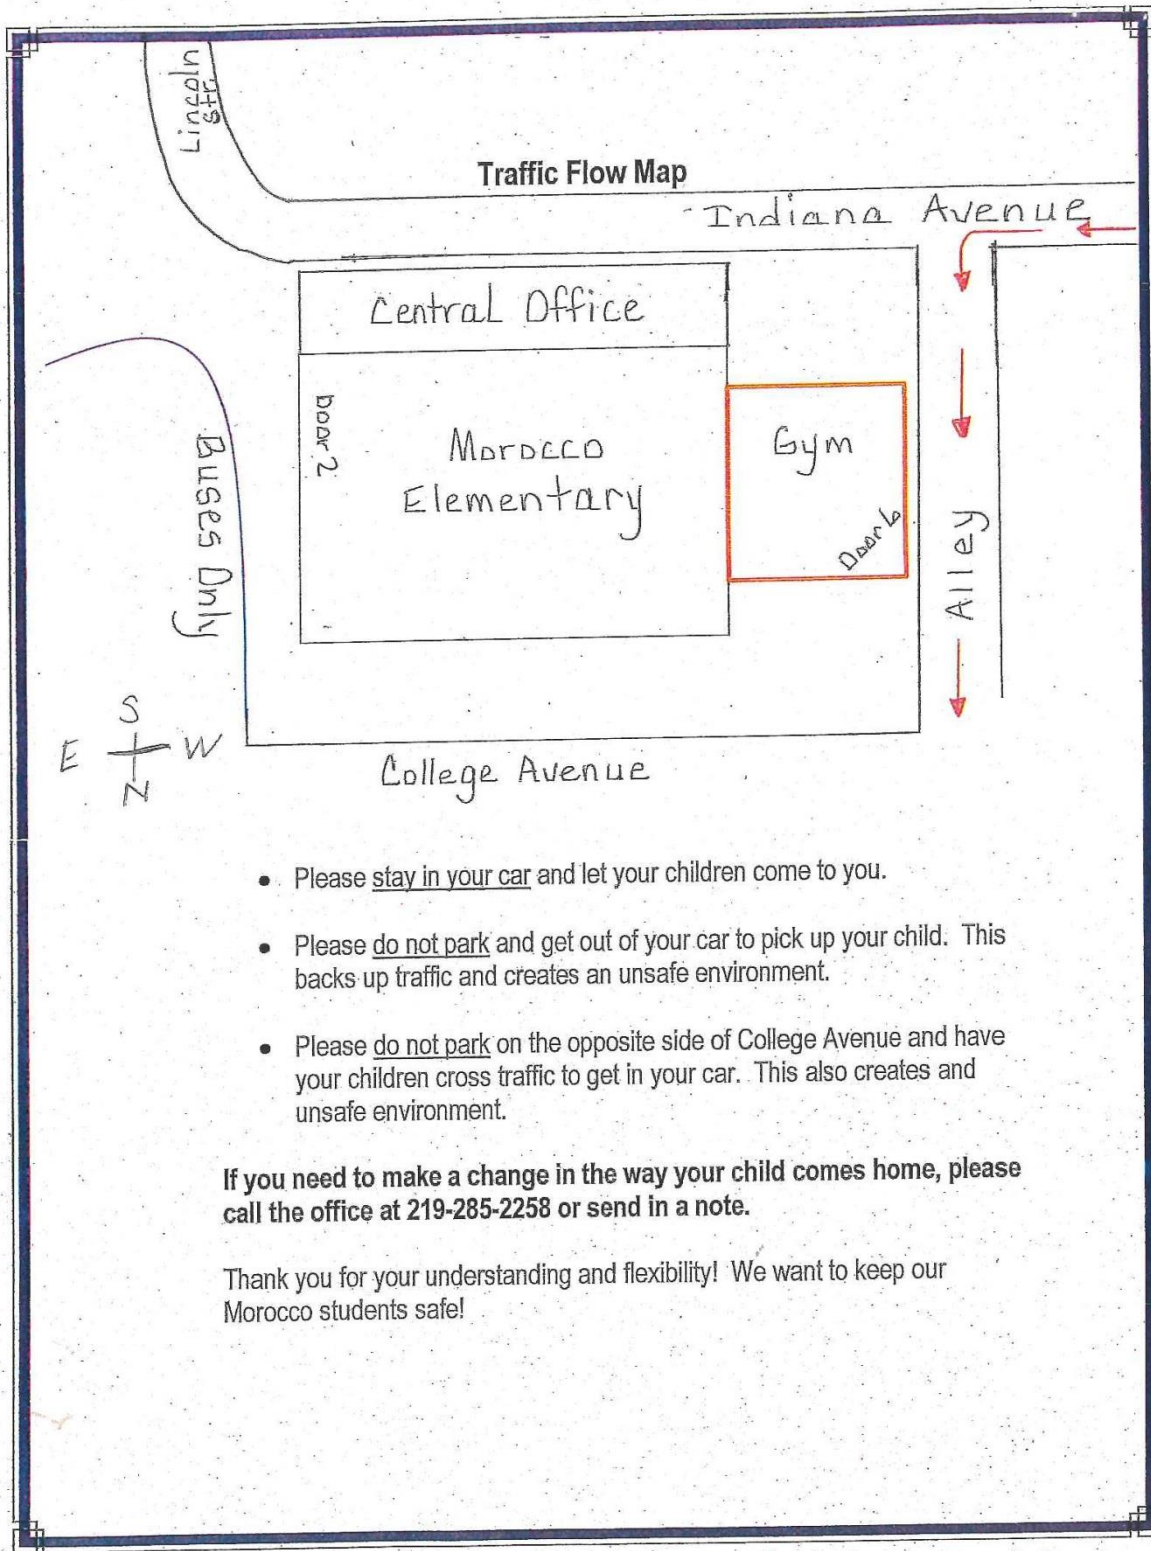 Lincoln
str.
Traffic Flow Map
Indiana Avenue
Central Office
Door 2
Morocco
Elementary
Gym
Door 6
Alley
Buses Only
S
E W
N
College Avenue
• Please stay in your car and let your children come to you.
• Please do not park and get out of your car to pick up your child. This
backs up traffic and creates an unsafe environment.
• Please do not park on the opposite side of College Avenue and have
your children cross traffic to get in your car. This also creates and
unsafe environment.
If you need to make a change in the way your child comes home, please
call the office at 219-285-2258 or send in a note.
Thank you for your understanding and flexibility! We want to keep our
Morocco students safe!